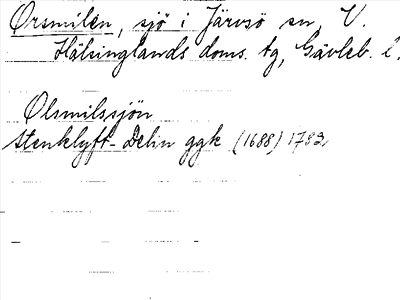 Orsmilen, sjö i Järvsö sn, V.
Hälsinglands doms. tg, Gävleb. l.
Olsmilssjön
Stenklyft-Delin ggk (1688) 1782